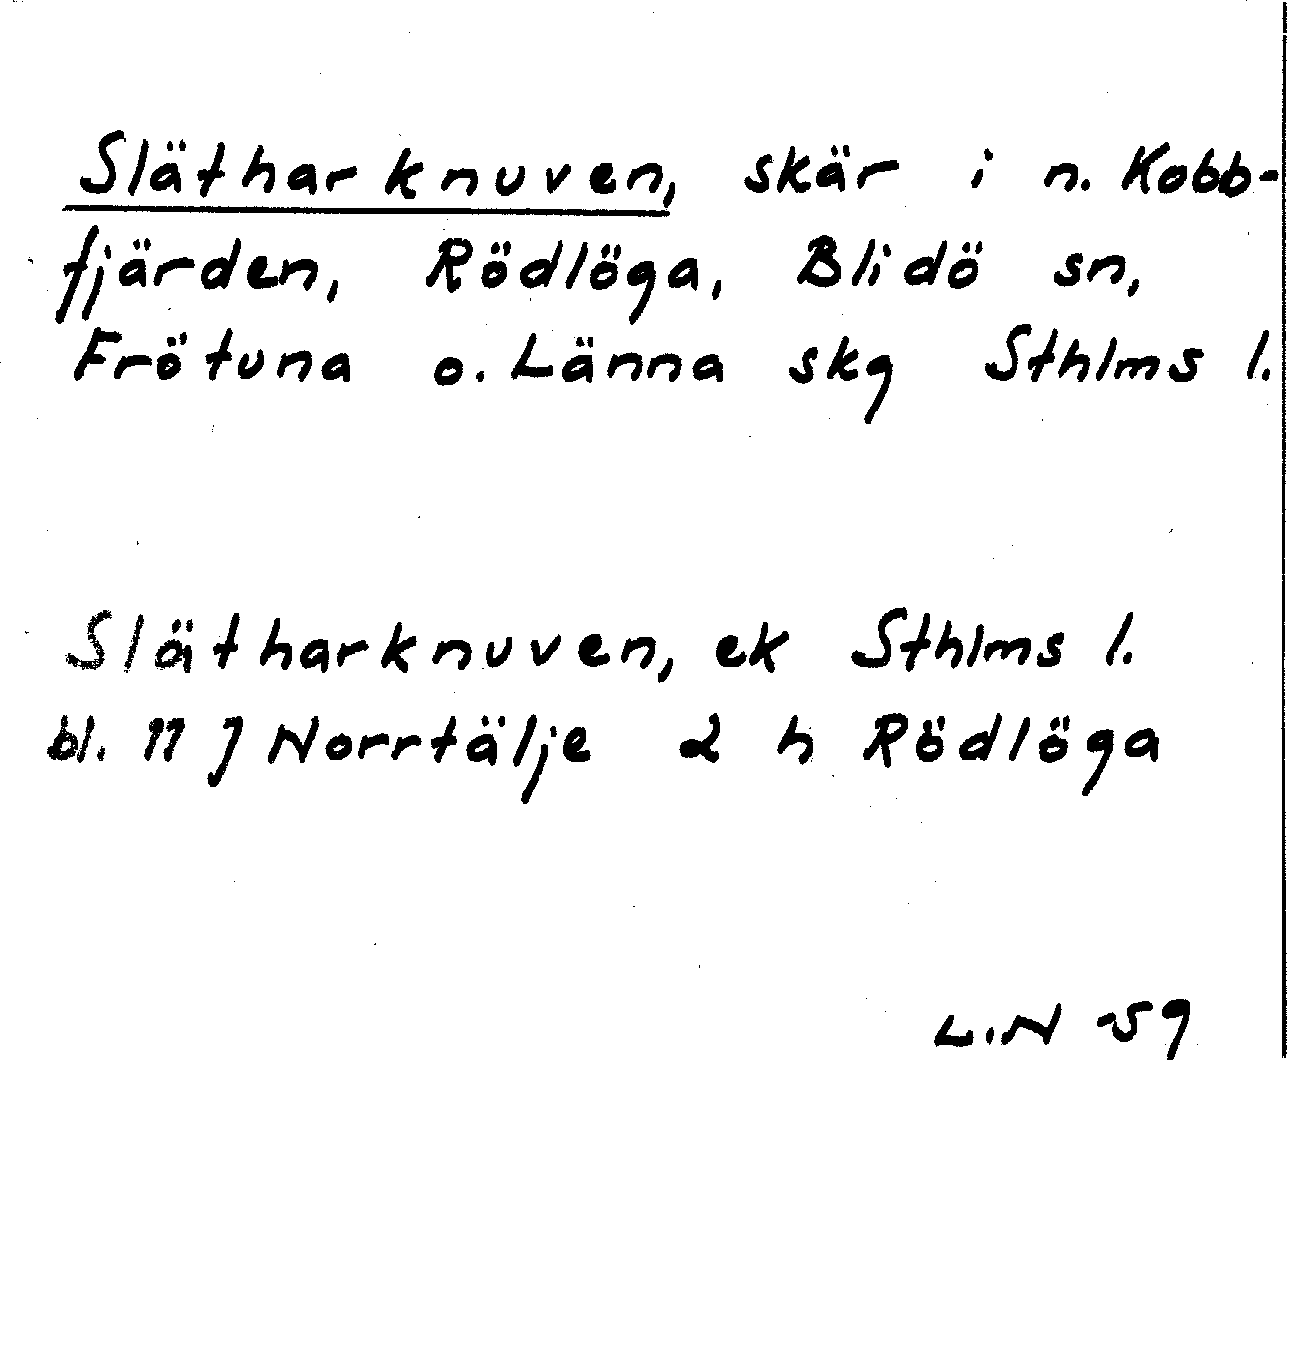 Slätharknuven, skär i n. Kobb-
fjärden, Rödlöga, Blidö sn,
Frötuna o. Länna skg Sthlms l.
Slätharknuven, ek Sthlms l.
bl. 11 J Norrtälje 2 h Rödlöga
L.N -59